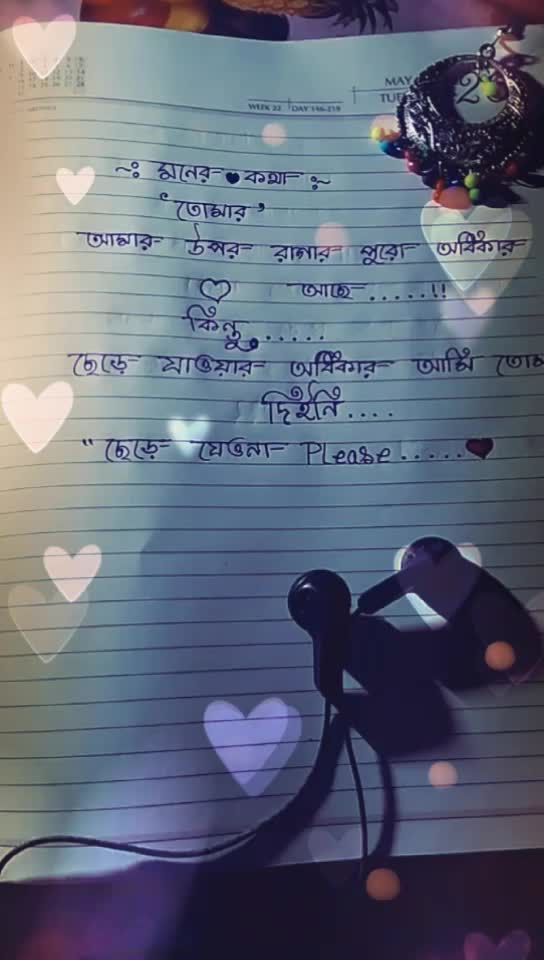 MAY
WEEK 22 DAY 146-219
~: মনের কথা :~
'তোমার'
আমার উপর রাগার পুরো অধিকার
আছে.....!!
কিন্তু.....
ছেড়ে যাওয়ার অধিকার আমি
দিইনি....
"ছেড়ে যেওনা Please.....